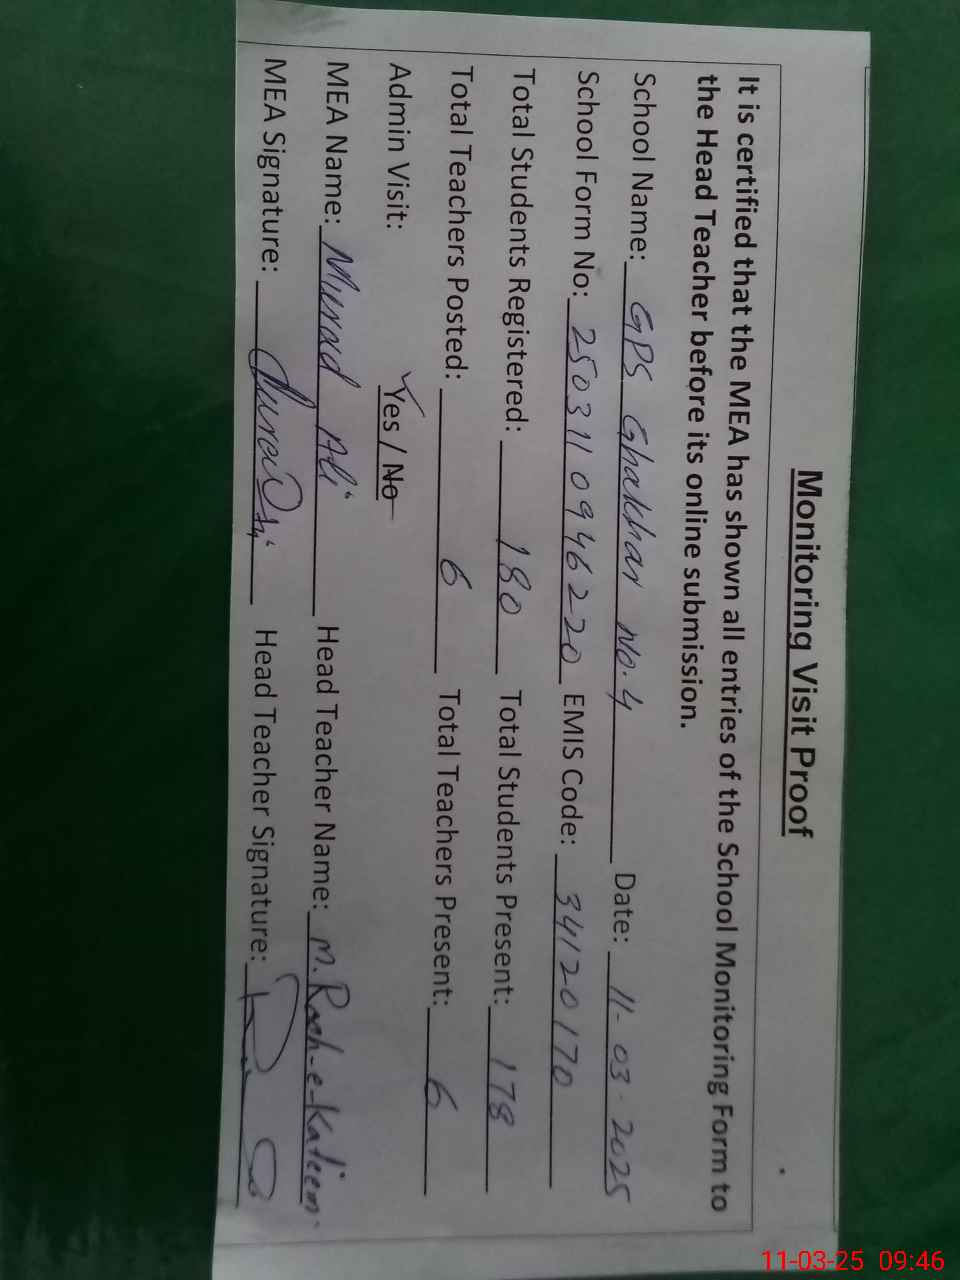 Monitoring Visit Proof
It is certified that the MEA has shown all entries of the School Monitoring Form to
the Head Teacher before its online submission.
School Name: GPS Ghakhar No.4 Date: 11-03-2025
School Form No: 2503110946220 EMIS Code: 34120170
Total Students Registered: 180 Total Students Present: 178
Total Teachers Posted: 6 Total Teachers Present: 6
Admin Visit: Yes / No
MEA Name: Murad Ali Head Teacher Name: M. Rooh-e-Kaleem
MEA Signature: Head Teacher Signature:
11-03-25 09:46